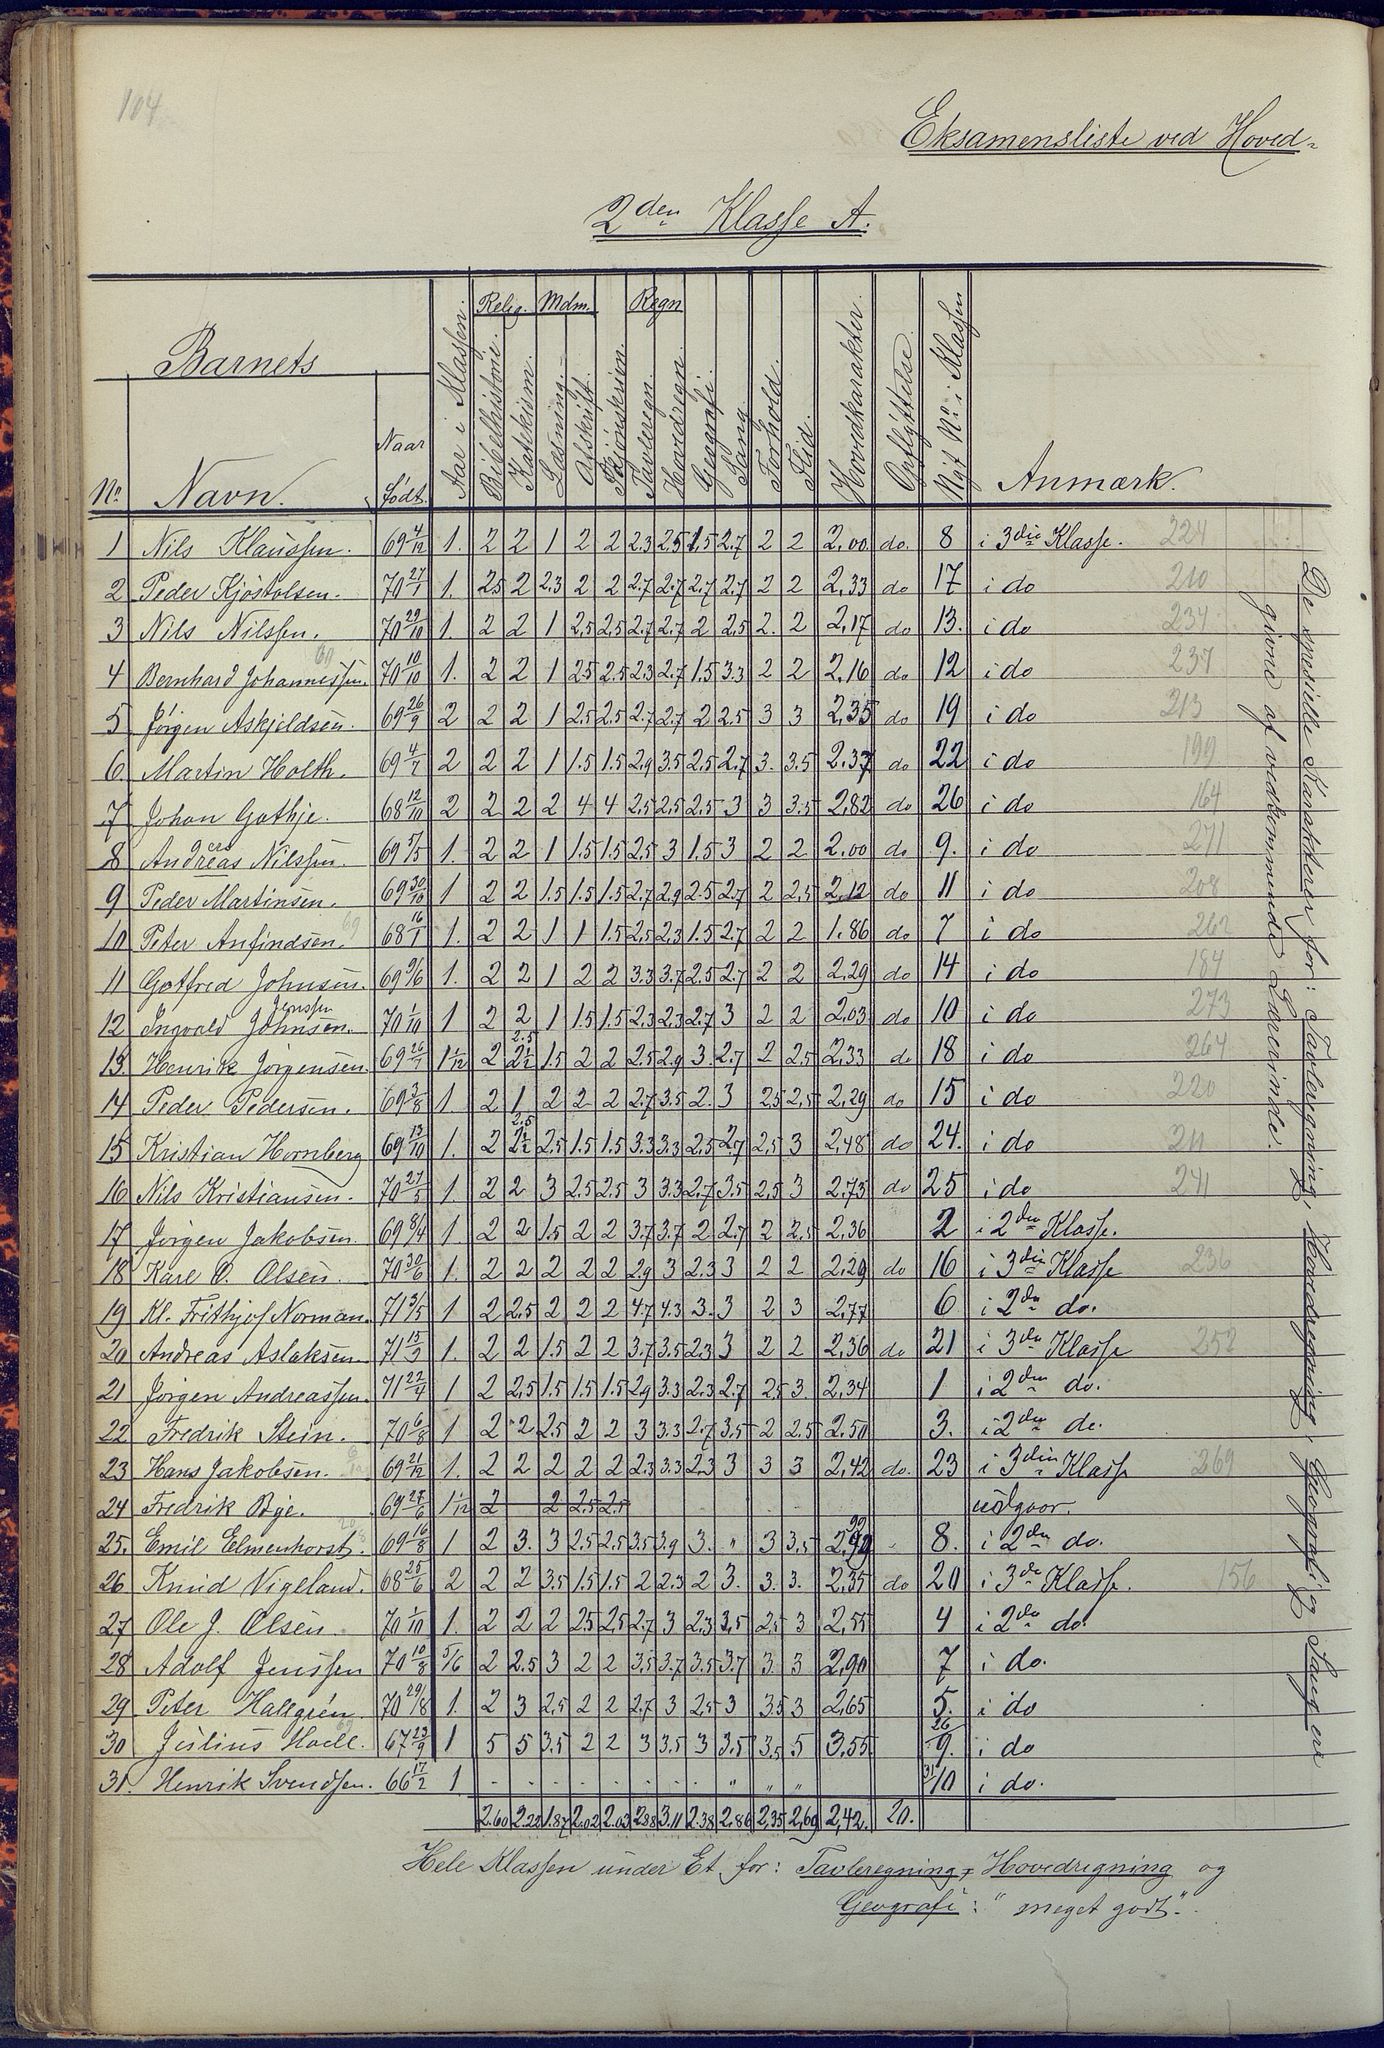 104
Eksamensliste ved Hoved-
2den Klasse A.
Barnets
Relig. Mdm. Regn
No. Navn. Naar født. Aar i Klassen. Bibelhistorie. Katekism. Læsning. Afskrift. Skjönskrivn. Tavleregn. Hovdregn. Geografi. Sang. Forhold. Flid. Hovedkarakter. Opflyttelse. Nyt No. i Klassen Anmærk.
1 Nils Klaussen. 69 4/12 1. 2 2 1 2 2 2.3 2.5 1.5 2.7 2 2 2,00 do. 8 i 3die Klasse. 224
2 Peder Kjöstolsen. 70 27/1 1. 2.5 2 2.3 2 2 2.7 2.7 2.7 2.7 2 2 2,33 do 17 i do 210
3 Nils Nilssen. 70 29/10 1. 2 2 1 2.5 2.5 2.7 2.7 2 2.5 2. 2 2,17 do 13. i do 234
4 Bernhard Johannessen. 69 70 10/10 1. 2 2 1 2.5 2.5 2.3 2.7 1.5 3.3 2 2 2,16 do 12 i do 237
5 Jørgen Askjeldsen. 69 26/9 2 2 2 1 2.5 2.5 2.7 2.7 2 2.5 3 3 2,35 do 19 i do 213
6 Martin Holth. 69 4/7 2 2 2 1 1.5 1.5 2.9 3.5 2.5 2.7 3. 3.5 2.37 do 22 i do 199
7 Johan Gathje. 68 12/10 2 2 2 2 4 4 2.5 2.5 2.5 3 3 3.5 2,82 do 26 i do 164
8 Andreas Nilssen. 69 5/5 1. 2 2 1 1.5 1.5 2.5 3 1.5 3 2 2 2,00 do 9. i do 271
9 Peder Martinsen. 69 30/10 1 2 2 1.5 1.5 1.5 2.7 2.9 2.5 2.7 2 2,5 2,12 do 11 i do 208
10 Peter Anfindsen. 69 68 16/1 1. 2 2 1 1 1.5 2.5 2.3 1.5 2.7 2 2 1.86 do 7 i do 262
11 Gotfred Johnsen. 69 9/6 1. 2 2 1 2 2 3.3 3.7 2.5 2.7 2 2 2,29 do 14 i do 184
12 Ingvald Johnsen. Jenssen 70 1/10 1 2 2 1 1.5 1.5 2.3 2.3 2.7 3 2 2 2,03 do 10 i do 273
13. Henrik Jørgensen. 69 26/7 1 1/12 2 2 1/2 2.5 1.5 2 2 2.5 2.9 3. 2.7 2 2,5 2,33 do 18 i do 264
14 Peder Pedersen. 69 3/8 1. 2 1 2 2 2 2.7 3.5 2. 3 2.5 2,5 2,29 do 15 i do 220
15 Kristian Hornberg 69 13/10 1. 2 2 1/2 2.5 2.5 1.5 1.5 3.3 3.3 2,5 2,7 2,5 3 2,48 do 24. i do 211
16 Nils Kristiansen. 70 27/5 1. 2 2 3 2.5 2.5 3 3.3 2.7 3.5 2,5 3 2.73 do 25 i do 241
17 Jörgen Jakobsen. 69 8/4 1. 2 2 1.5 2 2 3.7 3.7 2 2.7 2 2,5 2,36 2 i 2den Klasse.
18 Karl O. Olsen. 70 30/6 1. 2 2 2 2 2 2.9 3 2.3 3 2 2 2,29 do 16 i 3die Klasse 236
19 Kl. Frithjof Norman. 71 3/5 1. 2 2.5 2 2 2 4.7 4.3 3. 3 2 3 2,77 6 i 2den do.
20 Andreas Aslaksen. 71 13/2 1. 2 2 1.5 2 2 3.7 3.5 2.3 3 2 2 2,36 do 21 i 3die Klasse 252
21 Jörgen Andreassen. 71 22/4 1 2 2,5 1.5 1.5 1.5 2.9 3.3 2.3 2.7 2.5 3 2,34 1 i 2den do.
22 Fredrik Stein. 70 6/8 1 2 2 2.5 2 2 3 3.3 2.7 3.5 2 2.5 2,50 3. i 2den do.
23 Hans Jakobsen. 69 21/12 1. 2 2 2 2 2 2.3 3.3 2.3 3 3 3 2,42 do. 23 i 3die Klasse 269
24 Fredrik Bge. 69 27/6 1 1/12 2 — 2 2.5 2.5 udgaar.
25. Emil Elmenhorst. 69 16/8 1 2 3. 3 2.5 2.5 3.5 3.9 3. " 3 3,5 2,90 8. i 2den do.
26 Knud Vigeland. 68 25/6 2 2 2 3.5 1.5 1.5 2 2.3 2 3. 3. 3. 2,35 do 20 i 3die Klasse. 156
27 Ole J. Olsen. 70 1/10 1. 2 2 2 2.5 2.5 2.7 3 2.3 3,5 2,5 3 2,55 4 i 2den do.
28 Adolf Jenssen 70 10/8 5/6 2 2.5 3 2 2 3.5 3.7 3.5 3.7 3. 3 2,90 7 i do.
29 Peter Hallgrén. 70 29/8 1. 2 3 2.5 2 2 2.7 3 2.5 3 3.5 3 2,65 5. i do
30 Julius Hoell. 67 23/9 1 5 5 3.5 2 2 3 3.5 3 3.5 3.5 5 3.55 26/9. i do
31. Henrik Svendsen. 66 17/2 1 . . . . . . . . " " " 31/10 i do.
2.60 2.22 1.87 2.02 2.03 2.88 3.11 2.38 2.86 2,35 2,69 2,42. 20.
Hele Klassen under Et for: Tavleregning, Hovedregning og
Geografi: "meget godt".
De spesielle Karakterer for: Tavleregning, Hovedregning, Geografi og Sang ere
givne af vedkommende Lærerinde.